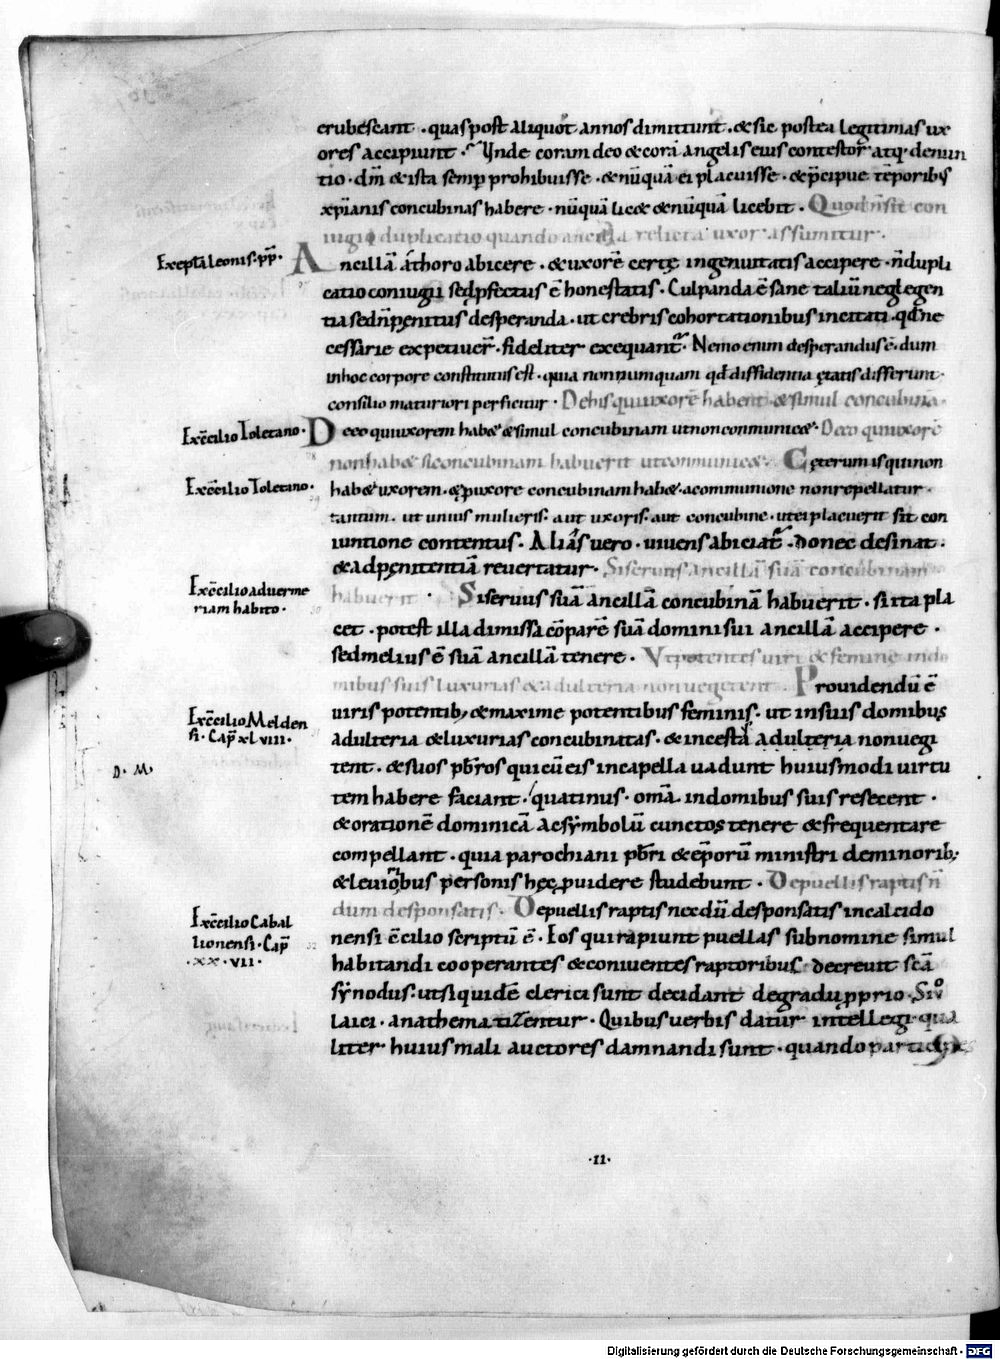 erubescant · quas post aliquot annos dimittunt · & sic postea legitimas ux
ores accipiunt · Unde coram deo & corā angelis eius contestor atq; denun
tio · dm̄ & ista semp prohibuisse · & nūquā ei placuisse · & p̄cipue tēporibus
xp̄ianis concubinas habere · nūquā licet & nūquā licebit · Quod n̄ sit con
iugii duplicatio quando ancilla relicta uxor assumitur ·
Ex epta leonis · pp̄ ·
Ancillā a thoro abicere · & uxorē certę ingenuitatis accipere · n̄ dupli
catio coniugii sed pfectus ē honestatis · Culpanda ē sane taliū neglegen
tia sed n̄ pęnitus desperanda · ut crebris cohortationibus incitati · qd̄ ne
cessarie expetiuer̄ · fideliter exequant · Nemo enim desperandus ē · dum
in hoc corpore constitutus est · quia nonnumquam qd̄ diffidentia ętatis differunt ·
consilio maturiori perficitur · De his qui uxorē habent · & simul concubinā ·
Ex c̄cilio Toletano ·
De eo qui uxorem hab& & simul concubinam ut non communic& · De eo qui uxorē
non hab& si concubinam habuerit ut communic& · Cęterum is qui non
Ex c̄cilio Toletano ·
hab& uxorem · & p uxore concubinam hab& · a communione non repellatur ·
tantum · ut unius mulieris · aut uxoris · aut concubine · ut ei placuerit sit con
iunctione contentus · Aliās uero · uiuens abiciat · donec desinat ·
& ad pęnitentiā reuertatur · Si seruus ancillā suā concubinam
Ex c̄cilio aduerme
riam habito ·
habuerit · Si seruus suā ancillā concubinā habuerit · si ita pla
cet · potest illa dimissa cōparē suā domini sui ancillā accipere ·
sed melius ē suā ancillā tenere · Ut potentes uiri & femine in do
mibus suis luxurias & adulteria non uegetent · Prouidendū ē
Ex c̄cilio Melden
si · Cap̄ xl viii ·
uiris potentib; & maxime potentibus feminis · ut in suis domibus
adulteria & luxurias concubinatas · & incesta adulteria non uegi
D · M ·
tent · & suos pb̄ros qui cū eis in capella uadunt huiusmodi uirtu
tem habere faciant · quatinus · omā in domibus suis resecent ·
& orationē dominicā ac sȳmbolū cunctos tenere & frequentare
compellant · quia parochiani pb̄ri & ep̄orū ministri de minorib;
& leuiōbus personis hęc puidere studebunt · De puellis raptis n̄
dum desponsatis · De puellis raptis necdū desponsatis in calcido
Ex c̄cilio Cabal
lionensi · Cap̄
· xx · vii ·
nensi c̄cilio scriptū ē · Eos qui rapiunt puellas sub nomine simul
habitandi cooperantes & coniuentes raptoribus · decreuit scā
sȳnodus · ut siquidē clerici sunt decidant degradu pprio · Si v̊
laici · anathematizentur · Quibus uerbis datur intellegi · qua
liter huius mali auctores damnandi sunt · quando participes
· II ·
Digitalisierung gefördert durch die Deutsche Forschungsgemeinschaft · DFG